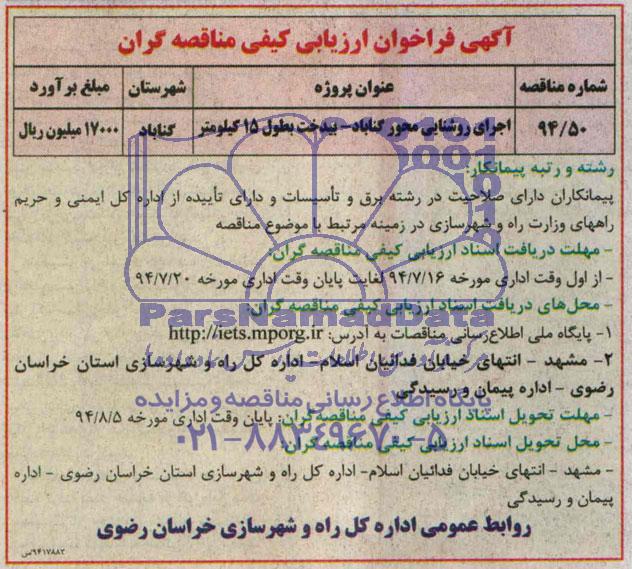 آگهی فراخوان ارزیابی کیفی مناقصه گران
شماره مناقصه عنوان پروژه شهرستان مبلغ برآورد
۹۴/۵۰ اجرای روشنایی محور گناباد - بیدخت بطول ۱۵ کیلومتر گناباد ۱۷۰۰۰ میلیون ریال
رشته و رتبه پیمانکار:
پیمانکاران دارای صلاحیت در رشته برق و تأسیسات و دارای تأییده از اداره کل ایمنی و حریم
راههای وزارت راه و شهرسازی در زمینه مرتبط با موضوع مناقصه
- مهلت دریافت اسناد ارزیابی کیفی مناقصه گران:
- از اول وقت اداری مورخه ۹۴/۷/۱۶ لغایت پایان وقت اداری مورخه ۹۴/۷/۲۰
- محل‌های دریافت اسناد ارزیابی کیفی مناقصه گران:
ParsNamadData
۱- پایگاه ملی اطلاع‌رسانی مناقصات به آدرس: http://iets.mporg.ir
۲- مشهد - انتهای خیابان فدائیان اسلام- اداره کل راه و شهرسازی استان خراسان
رضوی - اداره پیمان و رسیدگی
پایگاه اطلاع رسانی مناقصه و مزایده
- مهلت تحویل اسناد ارزیابی کیفی مناقصه‌گران: پایان وقت اداری مورخه ۹۴/۸/۵
۰۲۱-۸۸۳۴۹۶۷۰-۵
- محل تحویل اسناد ارزیابی کیفی مناقصه گران:
- مشهد - انتهای خیابان فدائیان اسلام- اداره کل راه و شهرسازی استان خراسان رضوی - اداره
پیمان و رسیدگی
روابط عمومی اداره کل راه و شهرسازی خراسان رضوی
۹۴۱۷۸۸۲/س